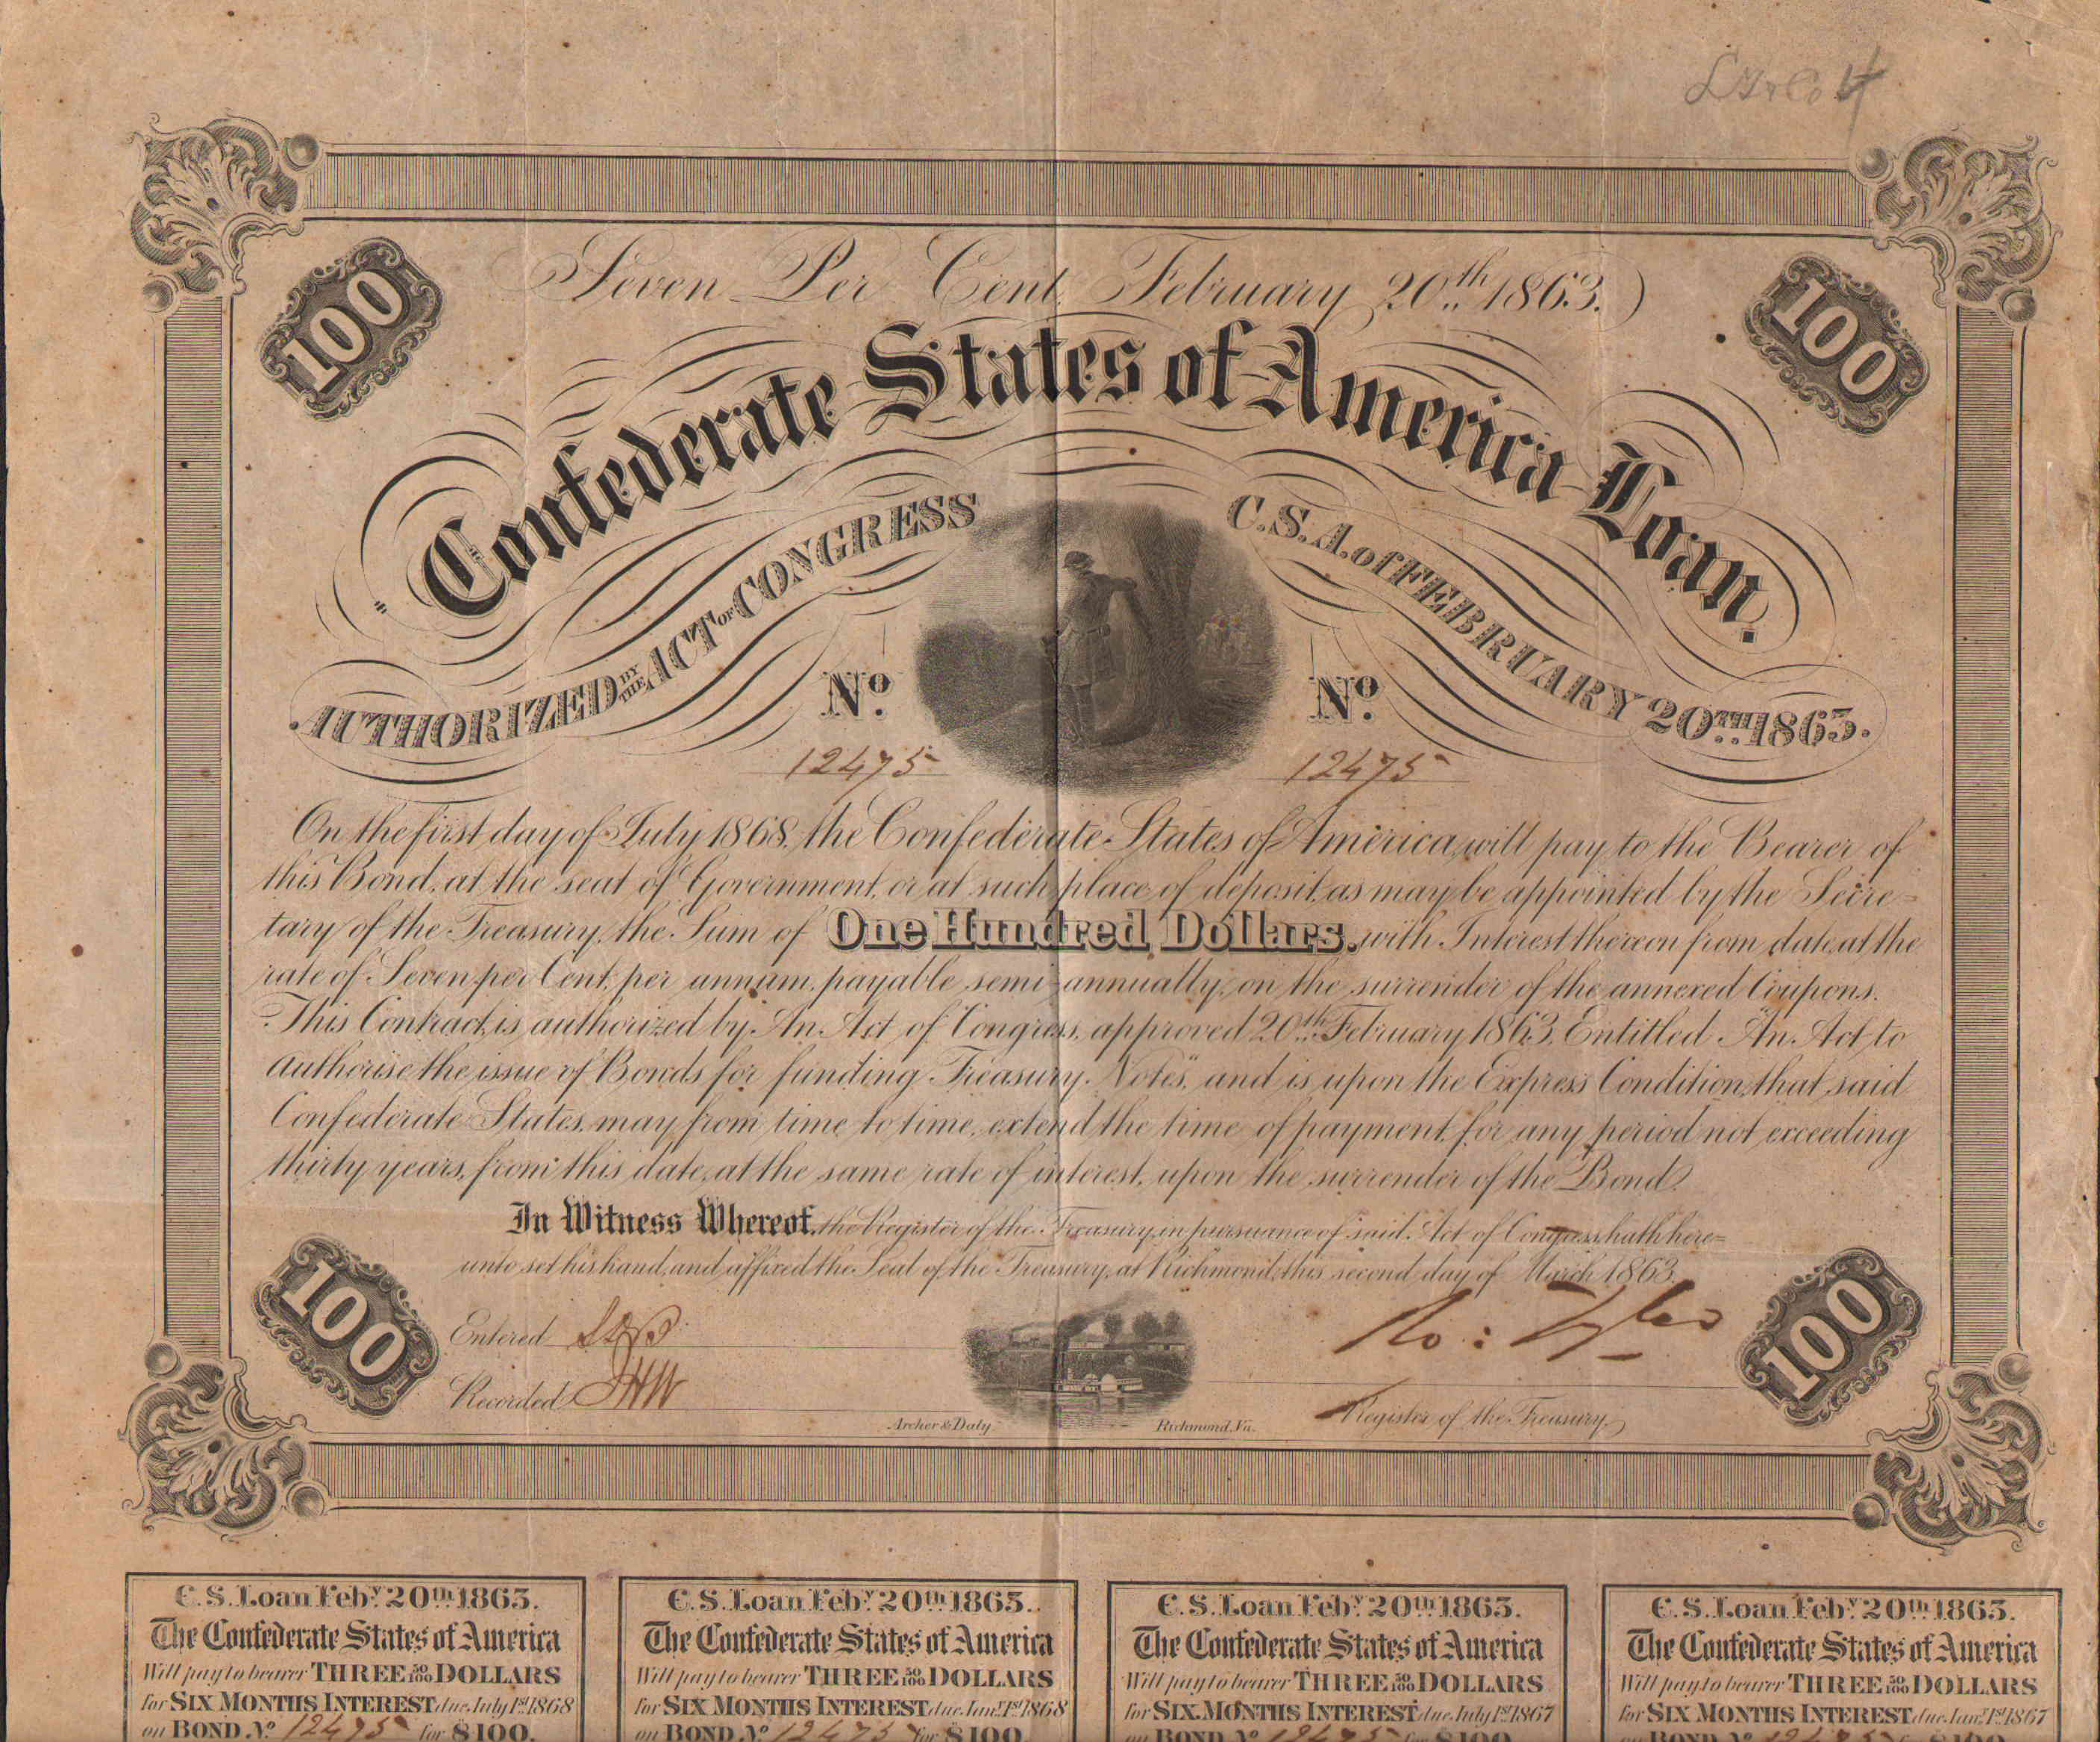 100
100
Seven Per Cent. February 20th 1863.
Confederate States of America Loan.
AUTHORIZED BY THE ACT OF CONGRESS C.S.A. of FEBRUARY 20TH 1863.
No. No.
12475 12475
On the first day of July 1868, the Confederate States of America, will pay to the Bearer of
this Bond, at the seat of Government, or at such place of deposit, as may be appointed by the Secre=
tary of the Treasury, the Sum of One Hundred Dollars, with Interest thereon from date, at the
rate of Seven per Cent, per annum, payable semi-annually, on the surrender of the annexed Coupons.
This Contract, is authorized by "An Act of Congress, approved 20th February 1863, Entitled "An Act to
Authorise the issue of Bonds for funding Treasury Notes," and is upon the Express Condition, that said
Confederate States, may from time to time, extend the time of payment for any period not exceeding
thirty years, from this date, at the same rate of interest, upon the surrender of the Bond.
In Witness Whereof, the Register of the Treasury, in pursuance of said Act of Congress, hath here=
unto set his hand, and affixed the Seal of the Treasury, at Richmond, this second day of March 1863.
100
100
Entered
Ro: Tyler
Recorded JHW
Archer & Daly Richmond, Va. Register of the Treasury
C.S. Loan Feby. 20th 1863.
The Confederate States of America
Will pay to bearer THREE 50/100 DOLLARS
for SIX MONTHS INTEREST due July 1st 1868
on BOND No. 12475 for $100.
C.S. Loan Feby. 20th 1863.
The Confederate States of America
Will pay to bearer THREE 50/100 DOLLARS
for SIX MONTHS INTEREST due Jany. 1st 1868
on BOND No. 12475 for $100
C.S. Loan Feby. 20th 1863.
The Confederate States of America
Will pay to bearer THREE 50/100 DOLLARS
for SIX MONTHS INTEREST due July 1st 1867
on BOND No. 12475 for $100
C.S. Loan Feby. 20th 1863.
The Confederate States of America
Will pay to bearer THREE 50/100 DOLLARS
for SIX MONTHS INTEREST due Jany. 1st 1867
on BOND No. 12475 for $100